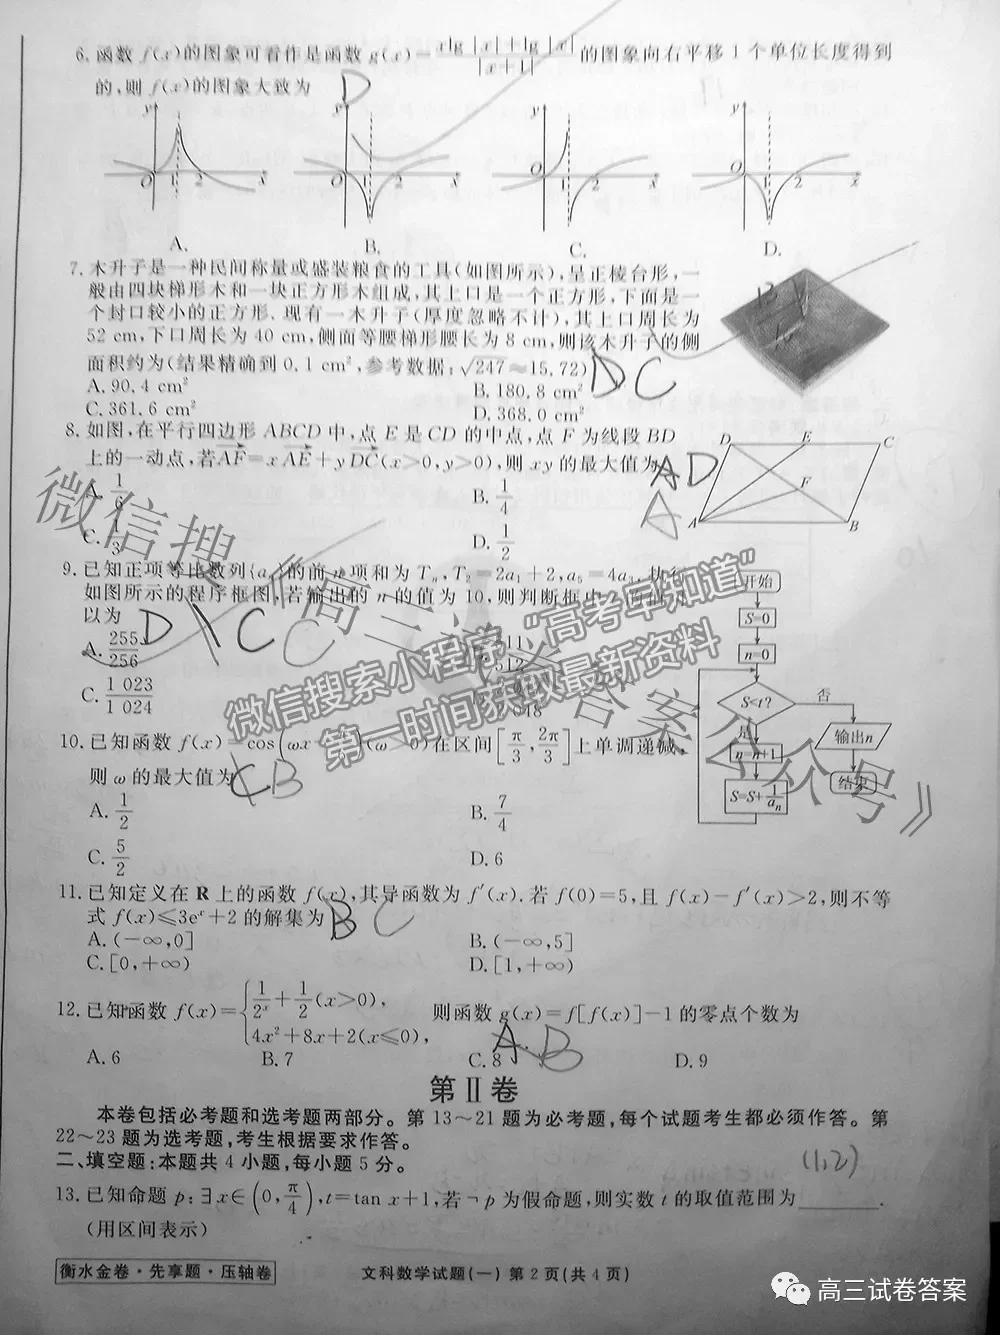 6.函数 f(x)的图象可看作是函数 g(x)=\frac{x\lg|x|+\lg|x|}{|x+1|}的图象向右平移1个单位长度得到
的,则 f(x)的图象大致为 D
y y y y
O 1 2 x O 1 2 x O 1 2 x O 1 2 x
A. B. C. D.
7.木升子是一种民间称量或盛装粮食的工具(如图所示),呈正棱台形,一
般由四块梯形木和一块正方形木组成,其上口是一个正方形,下面是一
个封口较小的正方形.现有一木升子(厚度忽略不计),其上口周长为
52 cm,下口周长为 40 cm,侧面等腰梯形腰长为 8 cm,则该木升子的侧
面积约为(结果精确到 0.1 cm²,参考数据:√247≈15.72) D C
A.90.4 cm² B.180.8 cm²
C.361.6 cm² D.368.0 cm²
8.如图,在平行四边形 ABCD 中,点 E 是 CD 的中点,点 F 为线段 BD
上的一动点,若\overrightarrow{AF}=x\overrightarrow{AE}+y\overrightarrow{DC}(x>0,y>0),则 xy 的最大值为 A D
A
A.\frac{1}{6} B.\frac{1}{4}
C.\frac{1}{3} D.\frac{1}{2}
D E C
F
A B
9.已知正项等比数列{a }的前 n 项和为 Tₙ,T₂=2a₁+2,a₅=4a ,执行
如图所示的程序框图,若输出的 n 的值为 10,则判断框中
以为 D C C
A.\frac{255}{256}
C.\frac{1 023}{1 024}
开始
S=0
n=0
S<t?
否
是
输出n
n=n+1
结束
S=S+\frac{1}{aₙ}
10.已知函数 f(x)=cos(ωx )(ω>0)在区间[\frac{π}{3},\frac{2π}{3}]上单调递减,
则 ω 的最大值为 C B
A.\frac{1}{2} B.\frac{7}{4}
C.\frac{5}{2} D.6
11.已知定义在 R 上的函数 f(x),其导函数为 f′(x).若 f(0)=5,且 f(x)-f′(x)>2,则不等
式 f(x)≤3eˣ+2 的解集为 B C
A.(-∞,0] B.(-∞,5]
C.[0,+∞) D.[1,+∞)
12.已知函数 f(x)={\frac{1}{2ˣ}+\frac{1}{2}(x>0), 4x²+8x+2(x≤0), 则函数 g(x)=f[f(x)]-1 的零点个数为
A. B
A.6 B.7 C.8 D.9
第Ⅱ卷
本卷包括必考题和选考题两部分。第 13~21 题为必考题,每个试题考生都必须作答。第
22~23 题为选考题,考生根据要求作答。
二、填空题:本题共 4 小题,每小题 5 分。
(1,2)
13.已知命题 p:∃x∈(0,\frac{π}{4}),t=tan x+1,若¬p 为假命题,则实数 t 的取值范围为________.
(用区间表示)
衡水金卷·先享题·压轴卷 文科数学试题(一) 第 2 页(共 4 页)
微信搜《高三试卷答案公众号》
微信搜索小程序“高考早知道”
第一时间获取最新资料
高三试卷答案